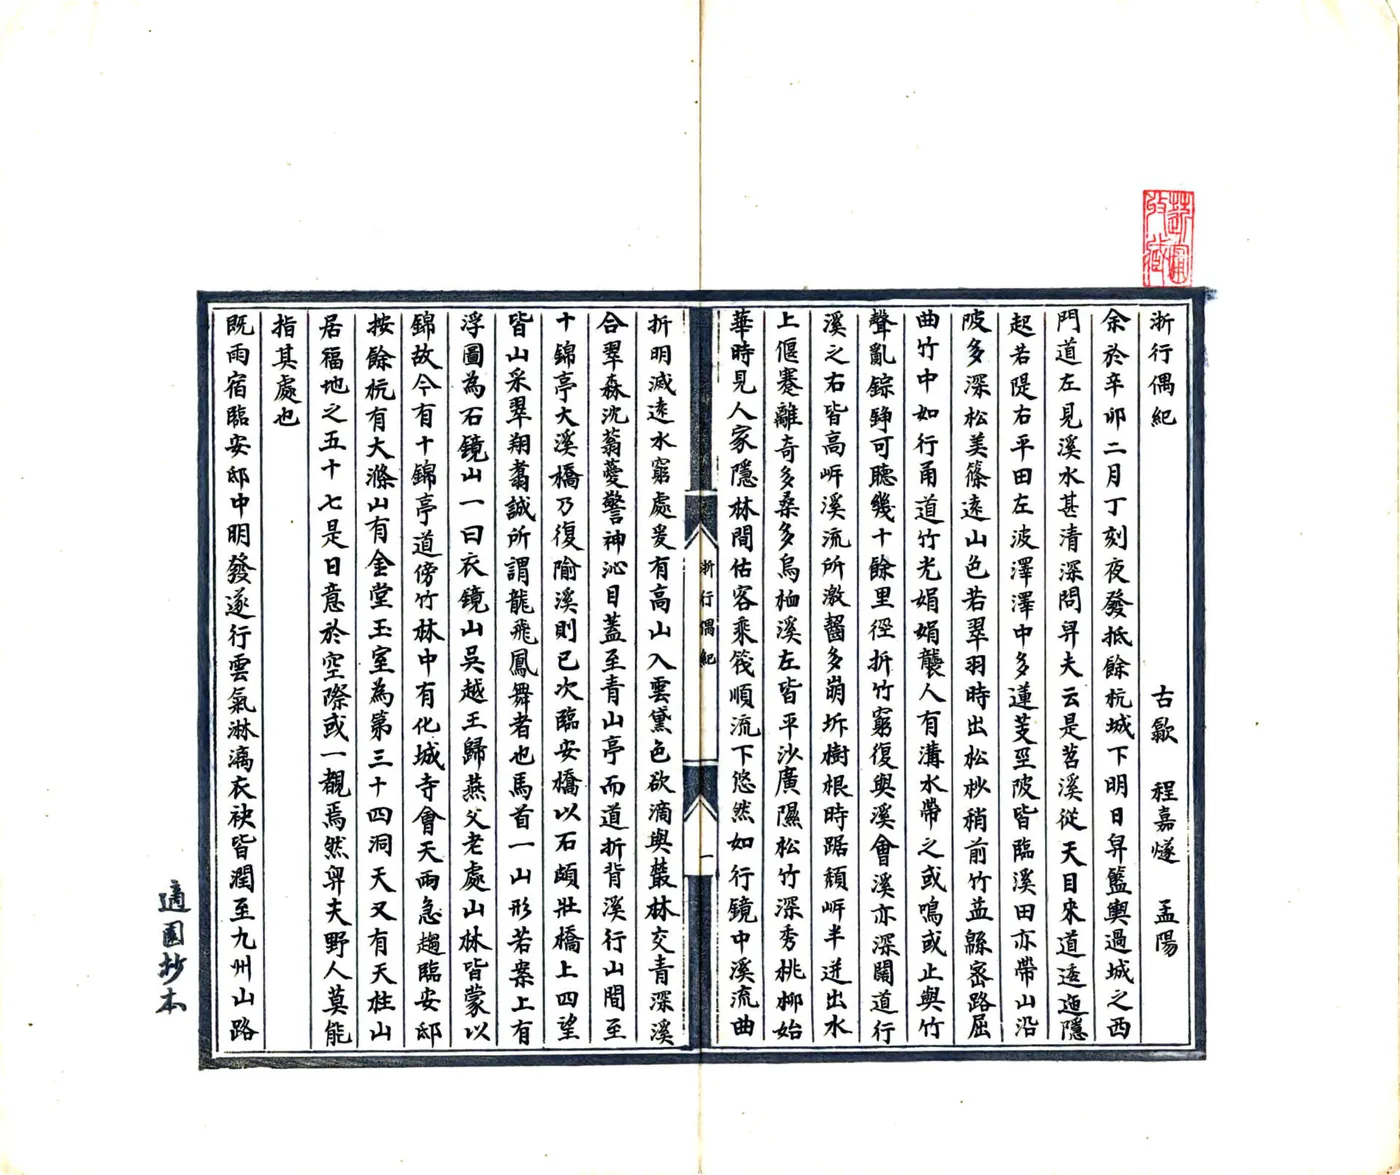 浙行偶紀
古歙 程嘉燧 孟陽
余於辛卯二月丁刻夜發抵餘杭城下明日舁籃輿過城之西
門道左見溪水甚清深問舁夫云是苕溪從天目來道逶迤隱
起若隄右平田左波澤澤中多蓮芰亟陂皆臨溪田亦帶山沿
陂多深松美篠遠山色若翠羽時出松杪稍前竹益緜密路屈
曲竹中如行甬道竹光娟娟襲人有溝水帶之或鳴或止與竹
聲亂錝錚可聽幾十餘里徑折竹窮復與溪會溪亦深闊道行
溪之右皆高岍溪流所激齧多崩坼樹根時踞頹岍半迸出水
上偃蹇離奇多桑多烏桕溪左皆平沙廣隰松竹深秀桃柳始
華時見人家隱林間估客乘筏順流下悠然如行鏡中溪流曲
折明滅遠水窮處爰有高山入雲黛色欲滴與叢林交青深溪
合翠森沈蓊薆警神沁目蓋至青山亭而道折背溪行山間至
十錦亭大溪橋乃復隃溪則已次臨安橋以石頗壯橋上四望
皆山采翠翔翥誠所謂龍飛鳳舞者也馬首一山形若案上有
浮圖為石鏡山一曰衣鏡山吳越王歸燕父老處山林皆蒙以
錦故今有十錦亭道傍竹林中有化城寺會天雨急趨臨安邸
按餘杭有大滌山有金堂玉室為第三十四洞天又有天柱山
居福地之五十七是日意於空際或一覩焉然舁夫野人莫能
指其處也
既雨宿臨安邸中明發遂行雲氣淋漓衣袂皆潤至九州山路
浙行偶紀
一
適園抄本